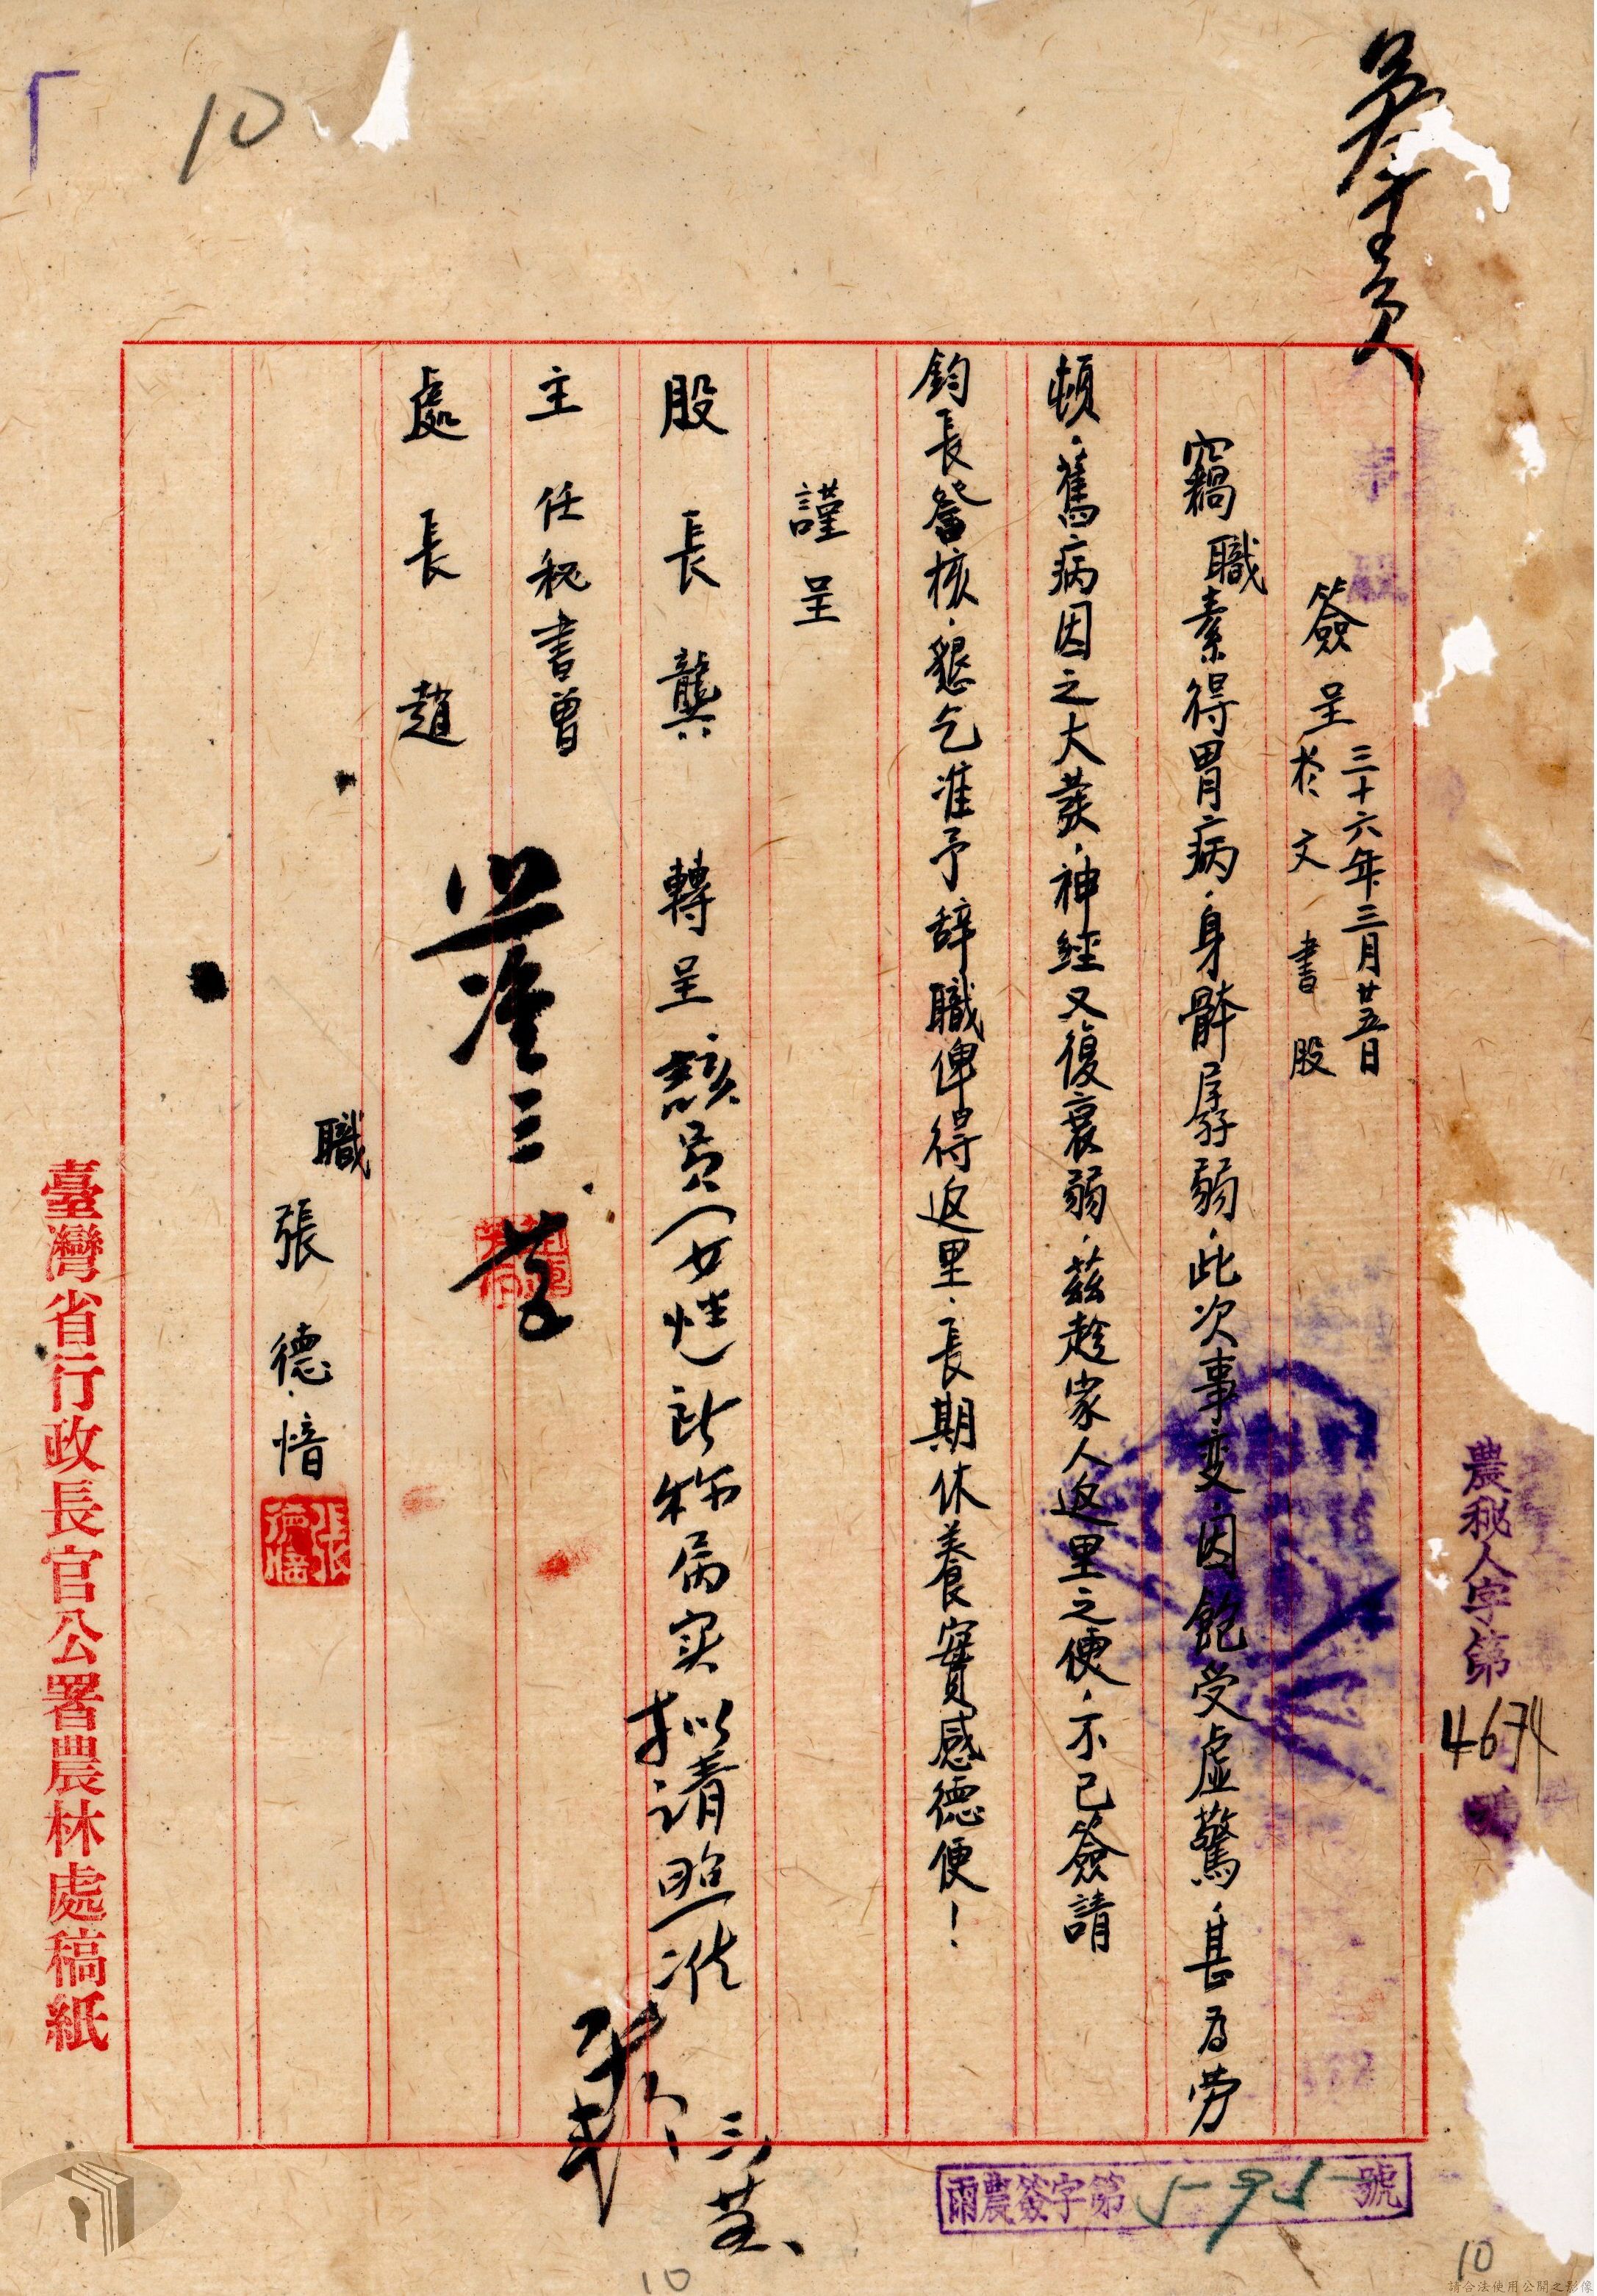 簽呈 三十六年三月廿五日
於文書股
竊職素得胃病，身體孱弱，此次事変，因飽受虛驚，甚為勞
頓，舊病因之大發，神經又復衰弱，茲趁家人返里之便，不已簽請
鈞長詧核，懇乞准予辞職俾得返里，長期休養實感德便！
謹呈
股長龔 轉呈
該員（女性）所称病实拟请照准
主任秘書曾
處長趙
准
職張德愔
臺灣省行政長官公署農林處稿紙
農秘人字第4674號
雨農簽字第595號
10
10
10
請合法使用公開之影像